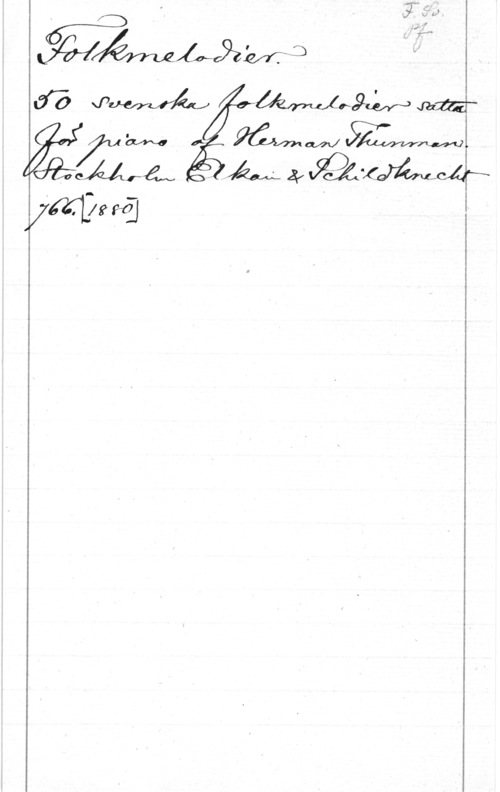 F. Sv.
Pf
Folkmelodier.
50 svenska folkmelodier satta
för piano af Herman Thunman.
Stockholm Elkan & Schildknecht
766. [1880]